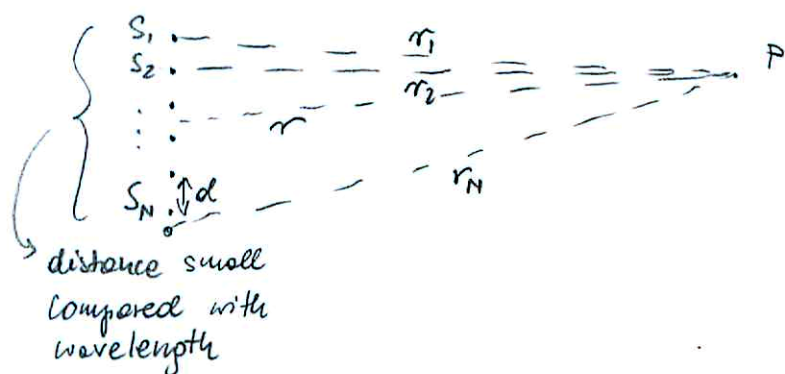 S1
r1
P
S2
r2
r
SN
d
rN
distance small
compared with
wavelength